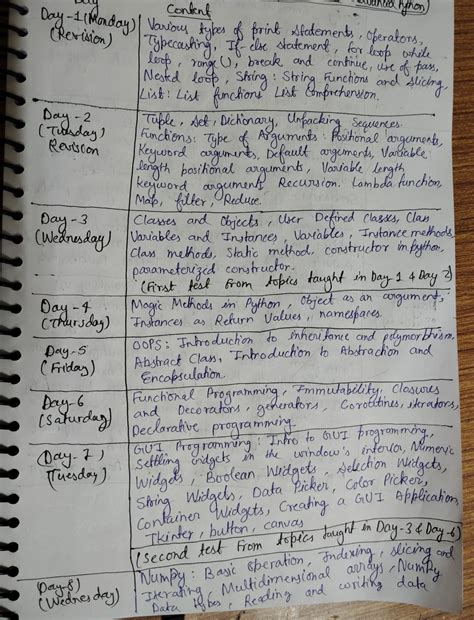 Day
Content
Advanced Python)
Day-1 (Monday)
(Revision)
Various types of print statements, Operators,
Typecasting, If-else statement, for loop while
loop, range(), break and continue, use of pass,
Nested loop, String: String Functions and slicing,
List: List functions List Comprehension.
Day-2
(Tuesday)
Revision
Tuple, Set, Dictionary, Unpacking Sequences.
Functions: Type of Arguments: Positional arguments,
Keyword arguments, Default arguments, Variable
length positional arguments, Variable length
Keyword arguments, Recursion. Lambda function,
Map, filter, Reduce.
Day-3
(Wednesday)
Classes and Objects, User Defined classes, Class
Variables and Instances, Variables, Instance methods,
Class methods, Static method, constructor in python,
parameterized constructor.
(First test From topics taught in Day-1 & Day 2)
Day-4
(Thursday)
Magic Methods in Python, Object as an argument,
Instances as Return Values, namespaces.
Day-5
(Friday)
OOPS: Introduction to inheritance and polymorphism,
Abstract Class, Introduction to Abstraction and
Encapsulation.
Day-6
(Saturday)
Functional Programming, Immutability, Closures
and Decorators, generators, Coroutines, iterators,
Declarative programming.
Day-7,
(Tuesday)
GUI Programming: Intro to GUI programming,
Settling widgets in the window's interior, Numeric
Widgets, Boolean Widgets, Selection Widgets,
String Widgets, Data Picker, Color Picker,
Container Widgets, Creating a GUI Application
Tkinter, button, canvas
(Second test From topics taught in Day-3 & Day-6)
Day-8)
(Wednesday)
Numpy: Basic Operation, Indexing, slicing and
Iterating, Multidimensional arrays, NumPy
Data types, Reading and writing data